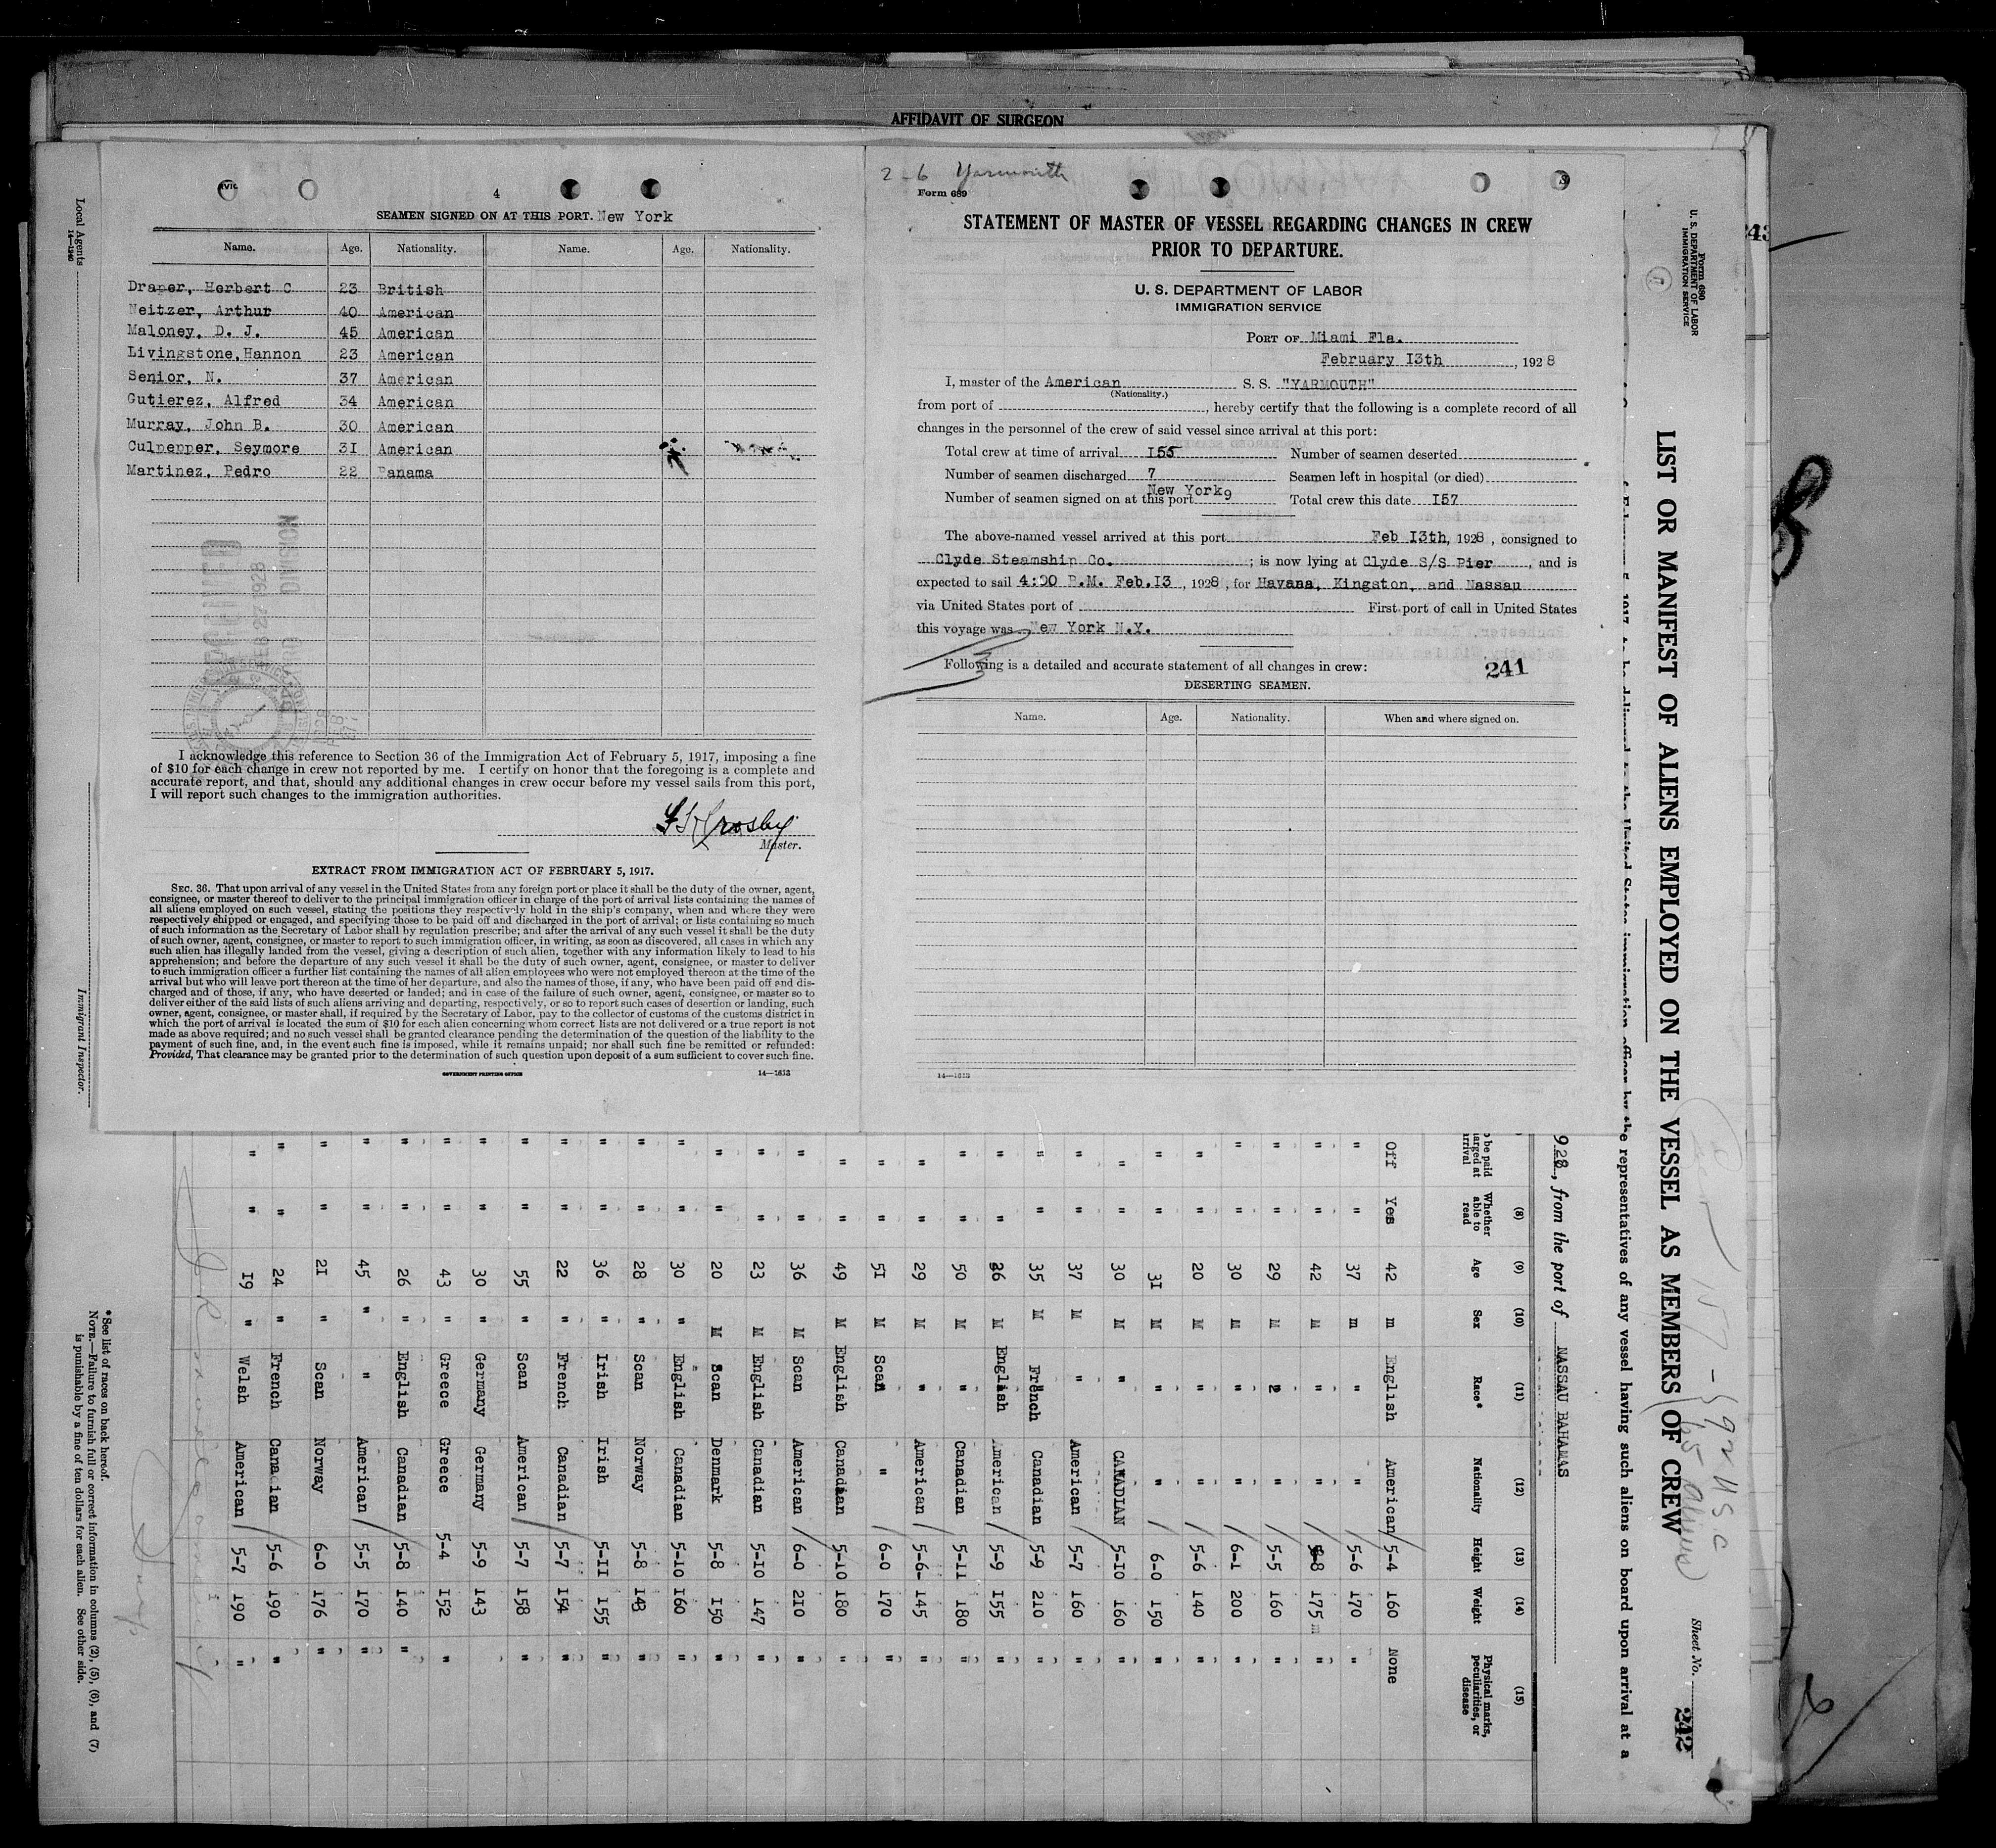 AFFIDAVIT OF SURGEON
4
SEAMEN SIGNED ON AT THIS PORT. New York
Name. Age. Nationality. Name. Age. Nationality.
Draper, Herbert C 23 British
Neitzer, Arthur 40 American
Maloney, D. J. 45 American
Livingstone, Hannon 23 American
Senior, N. 37 American
Gutierez, Alfred 34 American
Murray, John B. 30 American
Culpepper, Seymore 31 American
Martinez, Pedro 22 Panama
RECEIVED
FEB 27 1928
DIVISION
I acknowledge this reference to Section 36 of the Immigration Act of February 5, 1917, imposing a fine
of $10 for each change in crew not reported by me. I certify on honor that the foregoing is a complete and
accurate report, and that, should any additional changes in crew occur before my vessel sails from this port,
I will report such changes to the immigration authorities.
Crosby
Master.
EXTRACT FROM IMMIGRATION ACT OF FEBRUARY 5, 1917.
SEC. 36. That upon arrival of any vessel in the United States from any foreign port or place it shall be the duty of the owner, agent,
consignee, or master thereof to deliver to the principal immigration officer in charge of the port of arrival lists containing the names of
all aliens employed on such vessel, stating the positions they respectively hold in the ship's company, when and where they were
respectively shipped or engaged, and specifying those to be paid off and discharged in the port of arrival; or lists containing so much
of such information as the Secretary of Labor shall by regulation prescribe; and after the arrival of any such vessel it shall be the duty
of such owner, agent, consignee, or master to report to such immigration officer, in writing, as soon as discovered, all cases in which any
such alien has illegally landed from the vessel, giving a description of such alien, together with any information likely to lead to his
apprehension; and before the departure of any such vessel it shall be the duty of such owner, agent, consignee, or master to deliver
to such immigration officer a further list containing the names of all alien employees who were not employed thereon at the time of the
arrival but who will leave port thereon at the time of her departure, and also the names of those, if any, who have been paid off and dis-
charged and of those, if any, who have deserted or landed; and in case of the failure of such owner, agent, consignee, or master so to
deliver either of the said lists of such aliens arriving and departing, respectively, or so to report such cases of desertion or landing, such
owner, agent, consignee, or master shall, if required by the Secretary of Labor, pay to the collector of customs of the customs district in
which the port of arrival is located the sum of $10 for each alien concerning whom correct lists are not delivered or a true report is not
made as above required; and no such vessel shall be granted clearance pending the determination of the question of the liability to the
payment of such fine, and, in the event such fine is imposed, while it remains unpaid; nor shall such fine be remitted or refunded:
Provided, That clearance may be granted prior to the determination of such question upon deposit of a sum sufficient to cover such fine.
GOVERNMENT PRINTING OFFICE 14—1613
2-6 Yarmouth
Form 689
STATEMENT OF MASTER OF VESSEL REGARDING CHANGES IN CREW
PRIOR TO DEPARTURE.
U. S. DEPARTMENT OF LABOR
IMMIGRATION SERVICE
PORT OF Miami Fla.
February 13th, 1928
I, master of the American S. S. "YARMOUTH"
(Nationality.)
from port of , hereby certify that the following is a complete record of all
changes in the personnel of the crew of said vessel since arrival at this port:
Total crew at time of arrival 155 Number of seamen deserted
Number of seamen discharged 7 Seamen left in hospital (or died)
New York
Number of seamen signed on at this port 9 Total crew this date 157
The above-named vessel arrived at this port Feb 13th, 1928, consigned to
Clyde Steamship Co. ; is now lying at Clyde S/S Pier, and is
expected to sail 4:00 P.M. Feb.13, 1928, for Havana, Kingston, and Nassau
via United States port of First port of call in United States
this voyage was New York N.Y.
Following is a detailed and accurate statement of all changes in crew:
241
DESERTING SEAMEN.
Name. Age. Nationality. When and where signed on.
14—1613
Local Agents
14—1240
Immigrant Inspector.
243
Form 680
U. S. DEPARTMENT OF LABOR
IMMIGRATION SERVICE
LIST OR MANIFEST OF ALIENS EMPLOYED ON THE VESSEL AS MEMBERS OF CREW
Sheet No. 242
157 - { 92 USC
65 aliens
representatives of any vessel having such aliens on board upon arrival at a
928, from the port of NASSAU BAHAMAS
(8) (9) (10) (11) (12) (13) (14) (15)
Whether able to read Age Sex Race* Nationality Height Weight Physical marks, peculiarities, or disease
Off Yes 42 m English American 5-4 160 None
" " 37 m " " 5-6 170 "
" " 42 M " " 5-8 175 "
" " 29 M " " 5-5 160 "
" " 30 M " " 6-1 200 "
" " 20 M " " 5-6 140 "
" " 31 M " " 6-0 150 "
" " 30 M " CANADIAN 5-10 160 "
" " 37 M " American 5-7 160 "
" " 35 M French Canadian 5-9 210 "
" " 26 M English American 5-9 155 "
" " 50 M " Canadian 5-11 180 "
" " 29 M " American 5-6 145 "
" " 51 M Scan " 6-0 170 "
" " 49 M English Canadian 5-10 180 "
" " 36 M Scan American 6-0 210 "
" " 23 M English Canadian 5-10 147 "
" " 20 M Scan Denmark 5-8 150 "
" " 30 " English Canadian 5-10 160 "
" " 28 " Scan Norway 5-8 143 "
" " 36 " Irish Irish 5-11 155 "
" " 22 " French Canadian 5-7 154 "
" " 55 " Scan American 5-7 158 "
" " 30 " Germany Germany 5-9 143
" " 43 " Greece Greece 5-4 152 "
" " 26 " English Canadian 5-8 140 "
" " 45 " " American 5-5 170 "
" " 21 " Scan Norway 6-0 176 "
" " 24 " French Canadian 5-6 190 "
" " 19 " Welsh American 5-7 190 "
*See list of races on back hereof.
NOTE.—Failure to furnish full or correct information in columns (2), (5), (6), and (7)
is punishable by a fine of ten dollars for each alien. See other side.